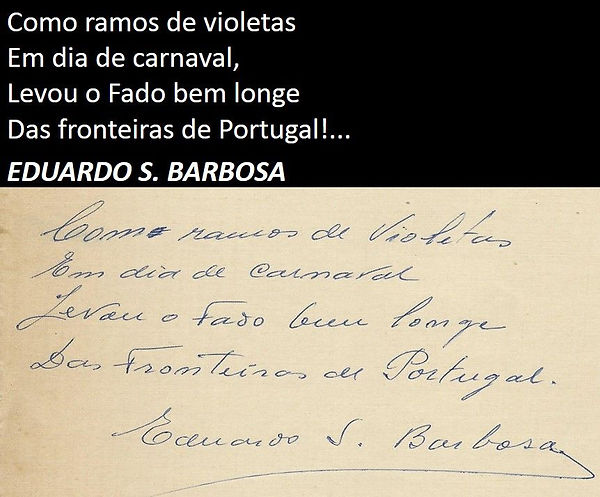 Como ramos de violetas
Em dia de carnaval,
Levou o Fado bem longe
Das fronteiras de Portugal!...
EDUARDO S. BARBOSA
Como ramos de Violetas
Em dia de Carnaval
Levou o Fado bem longe
Das Fronteiras de Portugal.
Eduardo S. Barbosa